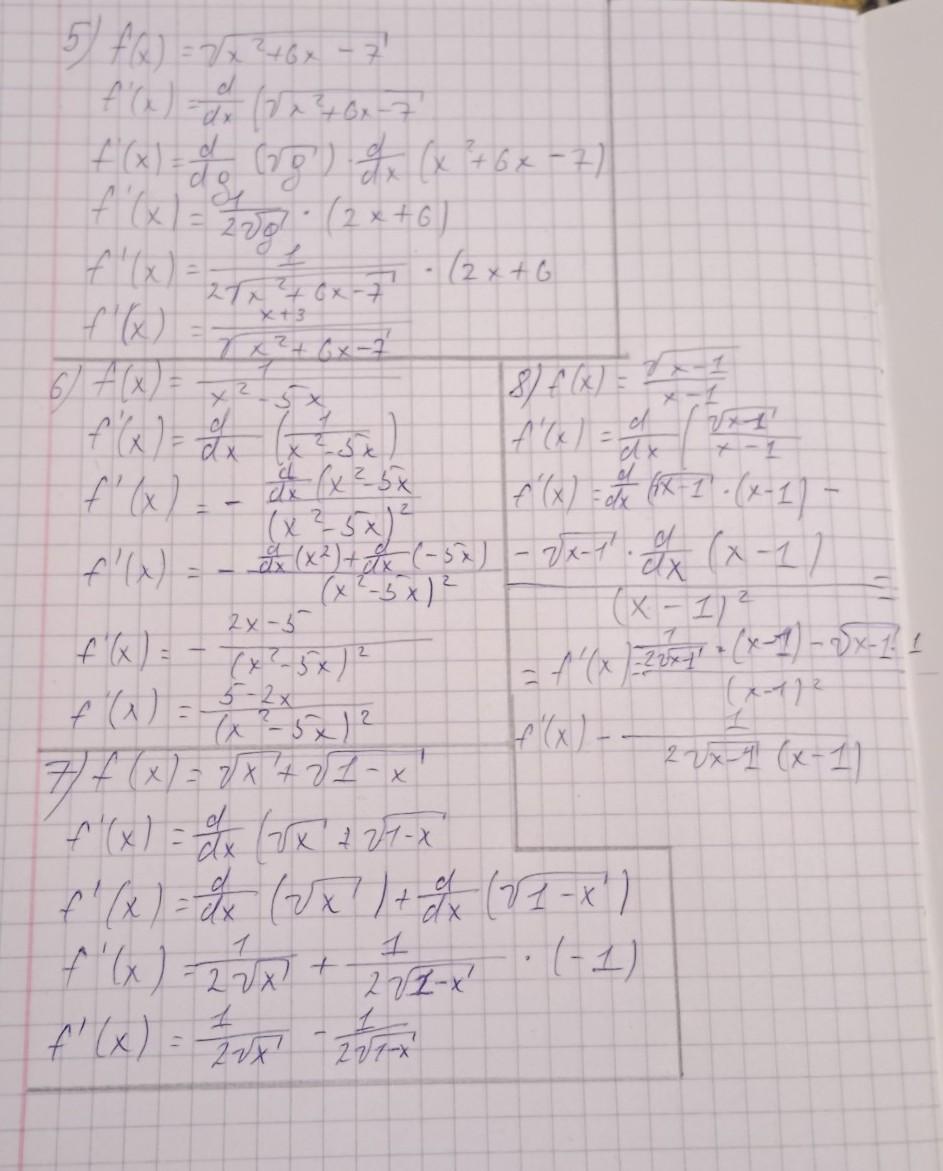 5) f(x) = √(x²+6x-7)
f'(x) = d/dx (√(x²+6x-7)
f'(x) = d/dg (√g) · d/dx (x²+6x-7)
f'(x) = 1/(2√g) · (2x+6)
f'(x) = 1/(2√(x²+6x-7)) · (2x+6
f'(x) = (x+3)/√(x²+6x-7)
6) f(x) = 1/(x²-5x)
f'(x) = d/dx (1/(x²-5x))
f'(x) = - (d/dx (x²-5x)/(x²-5x)²
f'(x) = - (d/dx (x²) + d/dx (-5x))/(x²-5x)²
f'(x) = - (2x-5)/(x²-5x)²
f'(x) = (5-2x)/(x²-5x)²
7) f(x) = √x + √(1-x)
f'(x) = d/dx (√x + √(1-x)
f'(x) = d/dx (√x) + d/dx (√(1-x))
f'(x) = 1/(2√x) + 1/(2√(1-x)) · (-1)
f'(x) = 1/(2√x) - 1/(2√(1-x))
8) f(x) = √(x-1)/(x-1)
f'(x) = d/dx (√(x-1)/(x-1)
f'(x) = d/dx (√(x-1) · (x-1) -
- √(x-1) · d/dx (x-1)/(x-1)² =
= f'(x) = (1/(2√(x-1)) · (x-1) - √(x-1) · 1)/(x-1)²
f'(x) - - 1/(2√(x-1) (x-1))